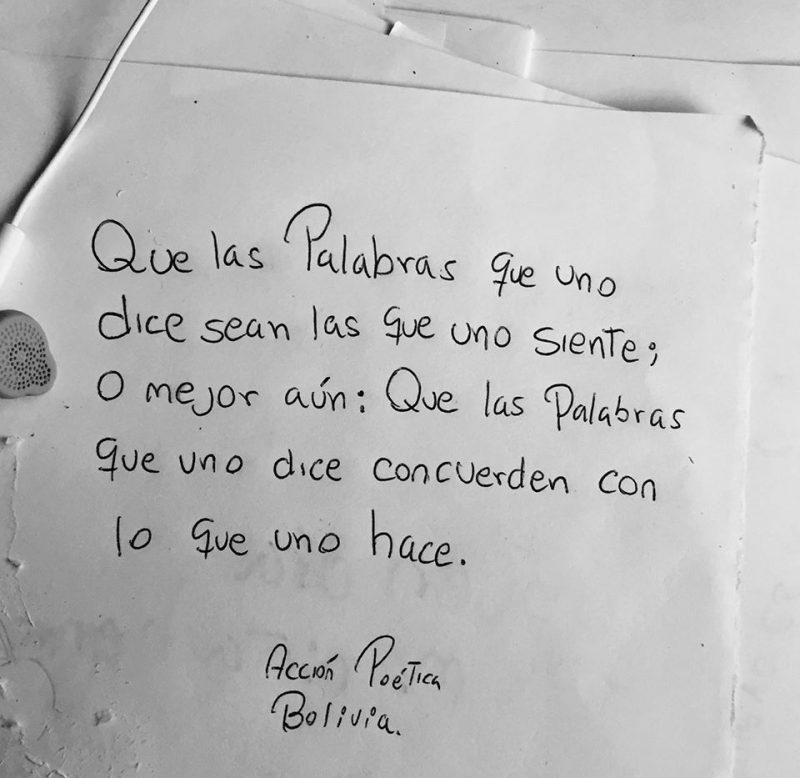 Que las Palabras que uno
dice sean las que uno siente;
O mejor aún: Que las Palabras
que uno dice concuerden con
lo que uno hace.
Acción Poética
Bolivia.